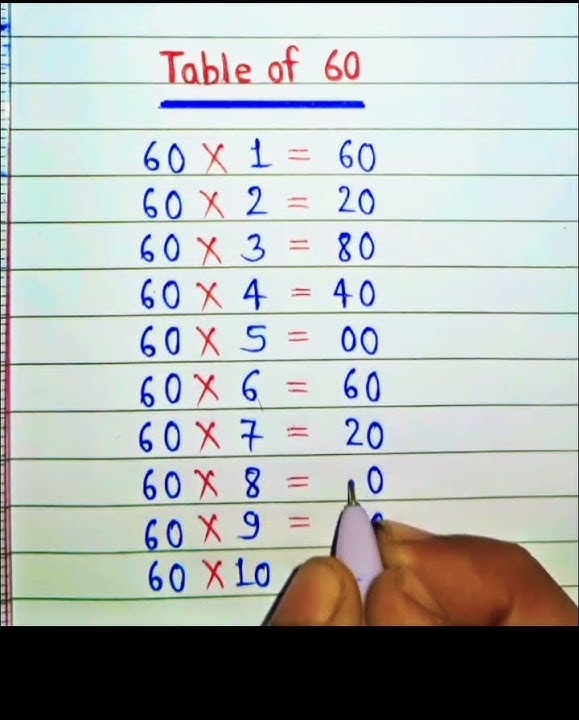 Table of 60
60 X 1 = 60
60 X 2 = 20
60 X 3 = 80
60 X 4 = 40
60 X 5 = 00
60 X 6 = 60
60 X 7 = 20
60 X 8 = 0
60 X 9 =
60 X 10